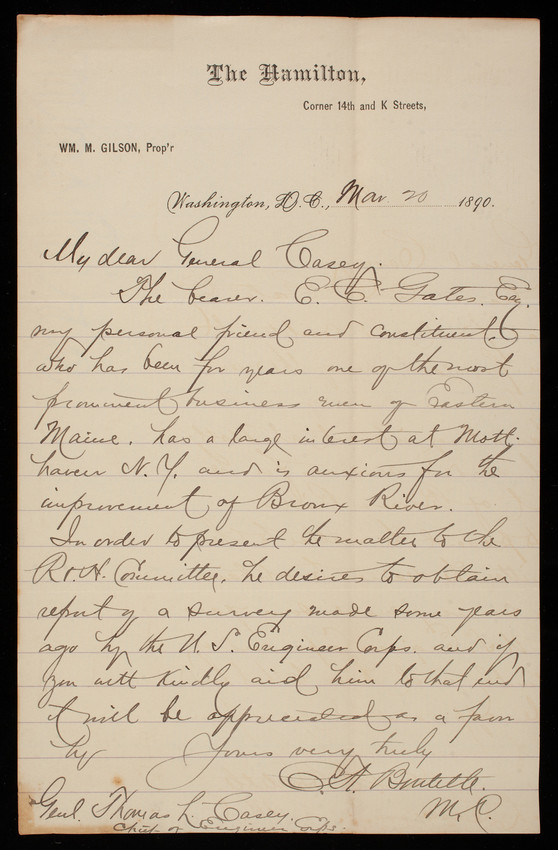 The Hamilton,
Corner 14th and K Streets,
WM. M. GILSON, Prop'r
Washington, D. C., Mar 20 1890.
My dear General Casey.
The bearer. E. C. Gates. Esq.
my personal friend and constituent
who has been for years one of the most
prominent business men of Eastern
Maine. has a large interest at Mott-
haven N. Y. and is anxious for the
improvement of Bronx River.
In order to present the matter to the
R & H. Committee, he desires to obtain
report of a survey made some years
ago by the U. S. Engineer Corps. and if
you will kindly aid him to that end
it will be appreciated as a favor
by Yours very truly
C. A. Boutelle.
M. C.
Genl. Thomas L. Casey.
Chief of Engineer Corps.